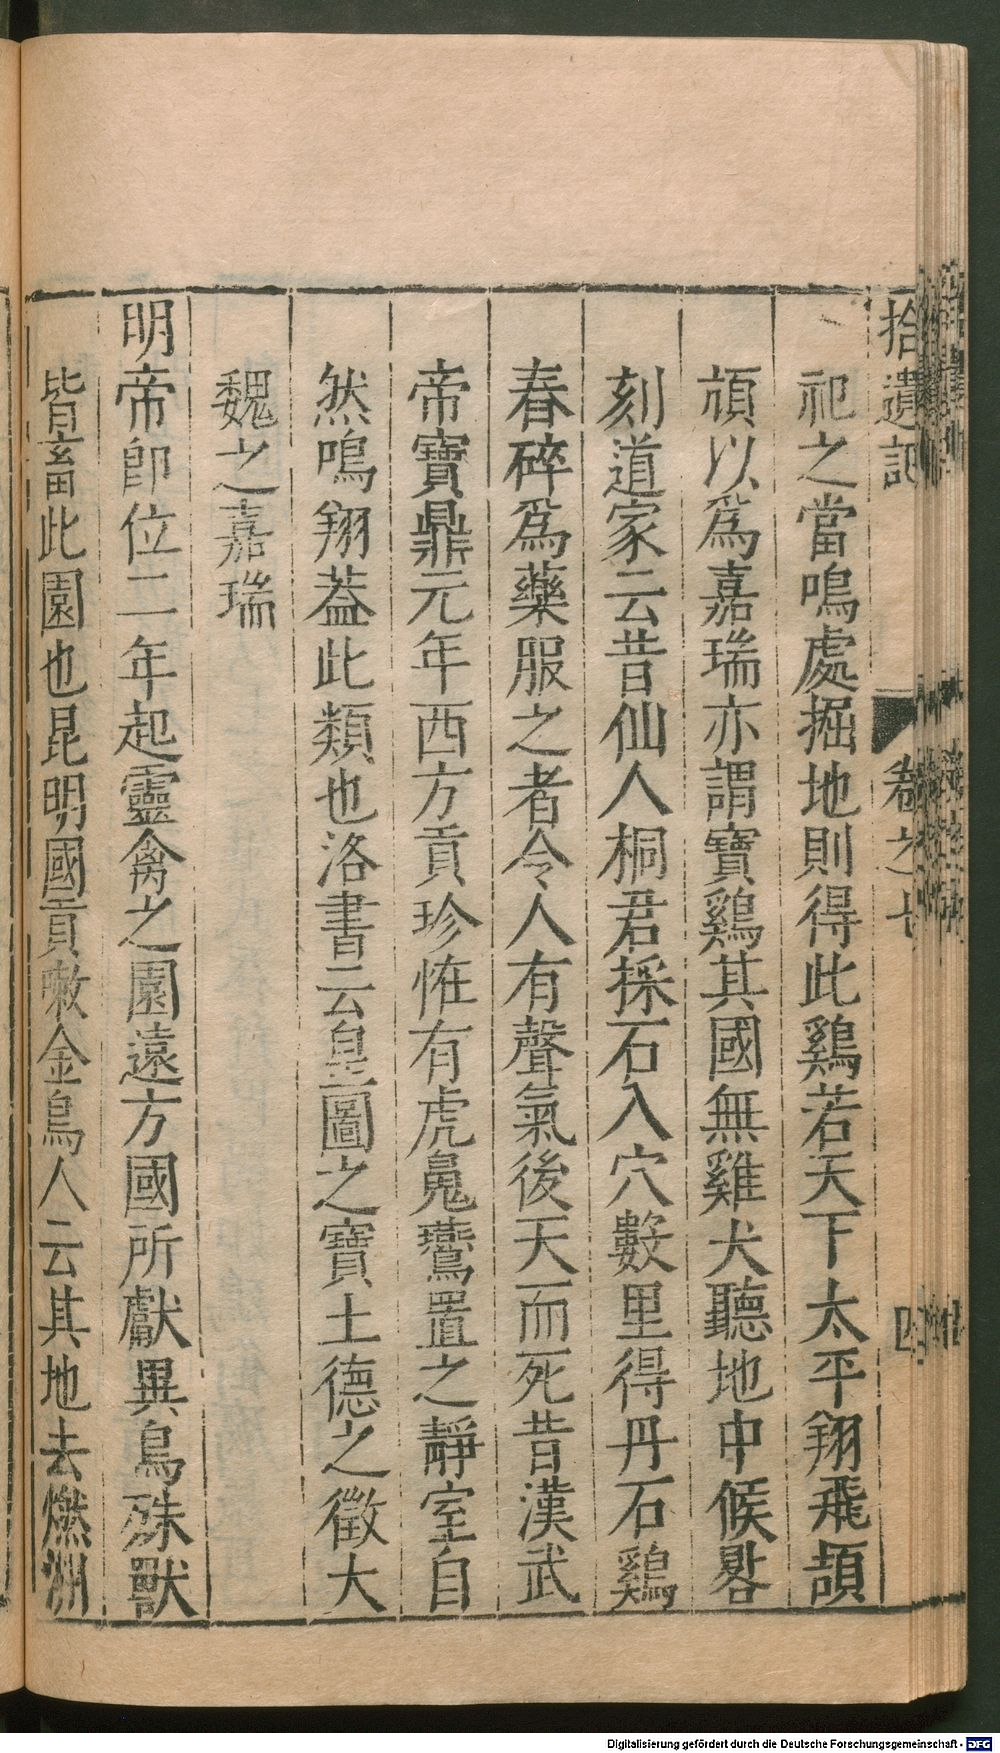 拾遺記 卷之七 四
祀之當鳴處掘地則得此鷄若天下太平翔飛頡
頏以爲嘉瑞亦謂寶鷄其國無雞犬聽地中候晷
刻道家云昔仙人桐君採石入穴數里得丹石鷄
舂碎爲藥服之者令人有聲氣後天而死昔漢武
帝寶鼎元年西方貢珍恠有虎鳧鷰置之靜室自
然鳴翔葢此類也洛書云皇圖之寶土德之徵大
魏之嘉瑞
明帝卽位二年起靈禽之園遠方國所獻異鳥殊獸
皆畜此園也昆明國貢嗽金鳥人云其地去燃洲
Digitalisierung gefördert durch die Deutsche Forschungsgemeinschaft - DFG